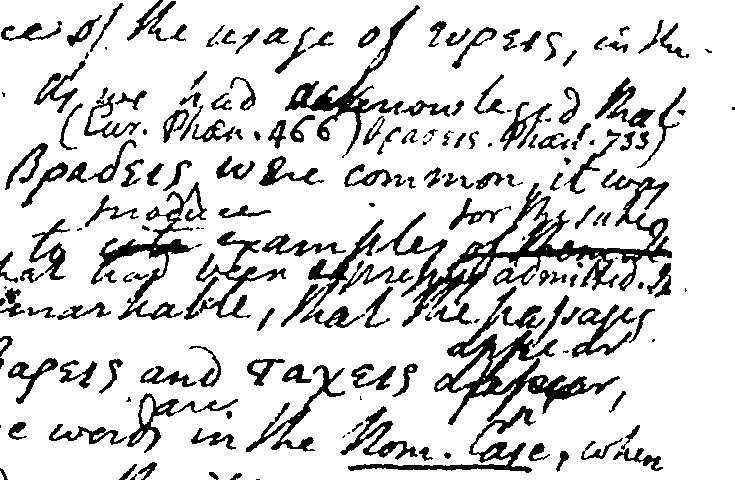 ce of the usage of ευρεις, in the
As we had acknowledged that
(Eur. Phœn. 466) βραδεις. Phœn. 733)
βραδεις were common, it was
produce for the sake
to cite examples of them
hat had been expressly admitted. It
emarkable, that the passages
appear
βαρεις and ταχεις appear,
are
e words in the Nom. Case, when